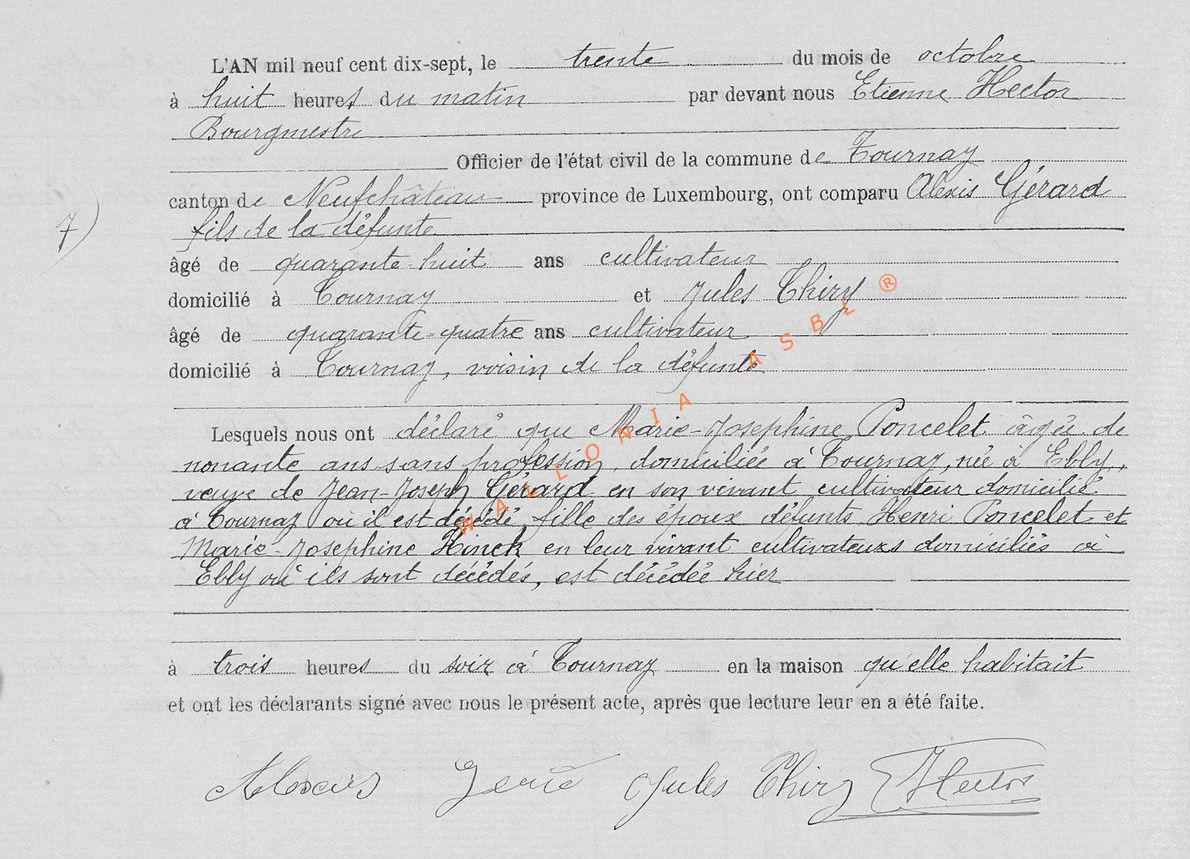 L'AN mil neuf cent dix-sept, le trente du mois de octobre
à huit heures du matin par devant nous Etienne Hector
Bourgmestre
Officier de l'état civil de la commune de Tournay
canton de Neufchâteau province de Luxembourg, ont comparu Alexis Gérard
7) fils de la défunte
âgé de quarante-huit ans cultivateur
domicilié à Tournay et Jules Thiry
âgé de quarante-quatre ans cultivateur
domicilié à Tournay, voisin de la défunte
Lesquels nous ont déclaré que Marie-Josephine Poncelet âgée de
nonante ans sans profession, domiciliée à Tournay, née à Ebly,
veuve de Jean-Joseph Gérard en son vivant cultivateur domicilié
à Tournay où il est décédé, fille des époux défunts Henri Poncelet et
Marie-Josephine Hinck en leur vivant cultivateurs domiciliés à
Ebly où ils sont décédés, est décédée hier
à trois heures du soir à Tournay en la maison qu'elle habitait
et ont les déclarants signé avec nous le présent acte, après que lecture leur en a été faite.
Jules Thiry E Hector
WALLONIA ASBL ®